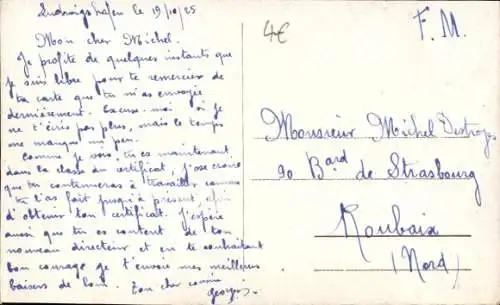 Ludwigshafen le 19/10/25
Mon cher Michel.
Je profite de quelques instants que
je suis libre pour te remercier de
ta carte que tu m'as envoyée
dernièrement. Excuse-moi si je
ne t'écris pas plus, mais le temps
me manque un peu.
Comme je vois, tu es maintenant
dans la classe du certificat, j'ose croire
que tu continueras à travailler comme
tu l'as fait jusqu'à présent, afin
d'obtenir ton certificat. J'espère
aussi que tu es content de ton
nouveau directeur et en te souhaitant
bon courage je t'envoie mes meilleurs
baisers de loin. Ton cher cousin
Georges.
4€
F. M.
Monsieur Michel
90 Bard de Strasbourg
Roubaix
(Nord)